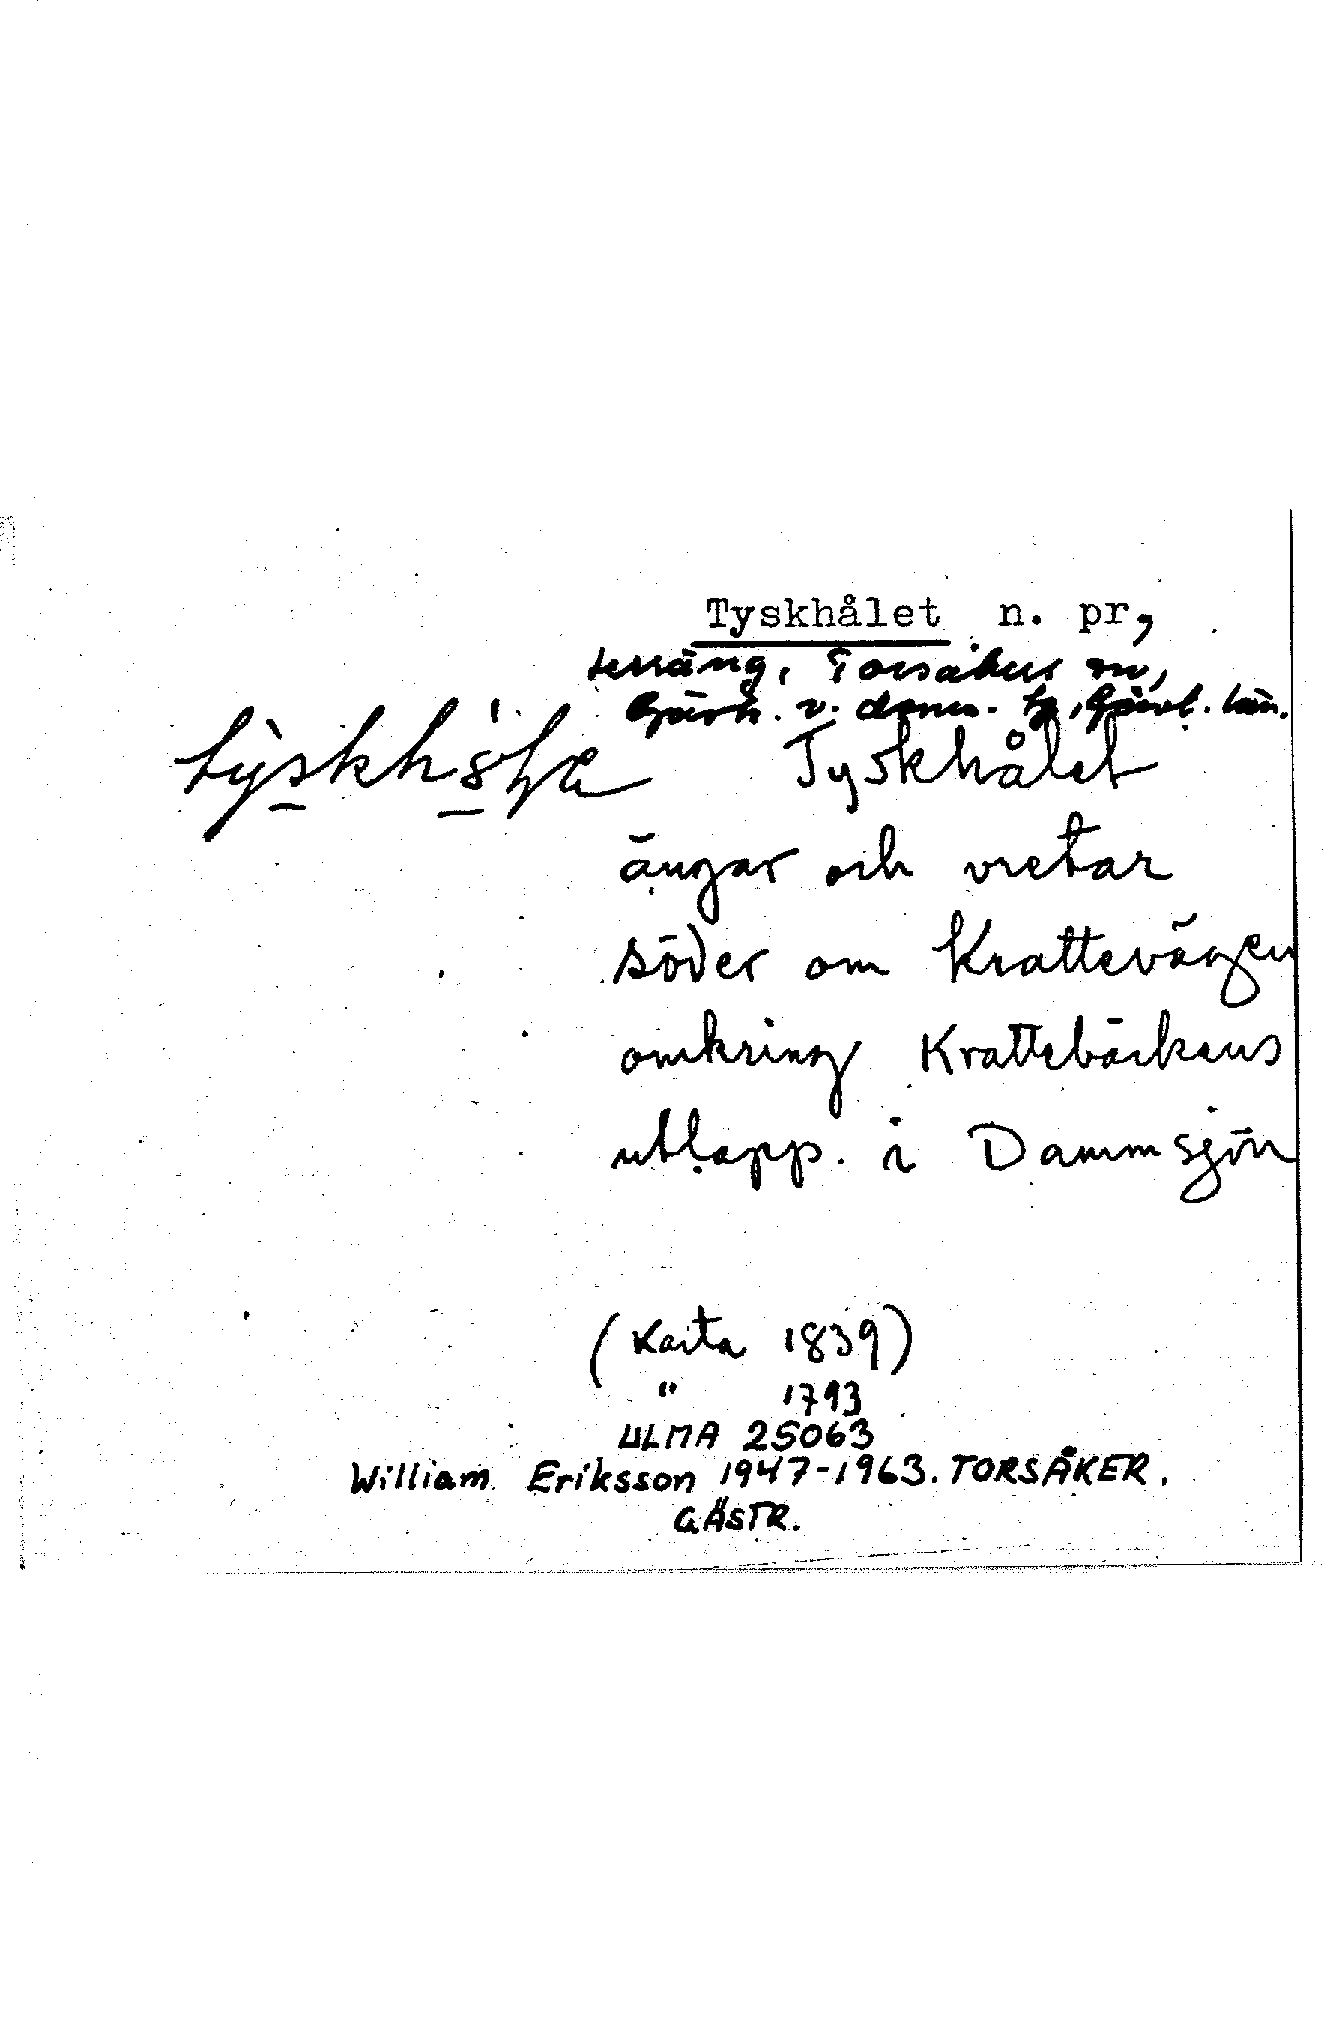 Tyskhålet n. pr,
terräng, Torsåkers sn,
Gästr. v. doms. tg, Gävl. län.
Tyskhålet
ängar och vretar
söder om Krattevägen
omkring Krattebäckens
utlopp. i Dammsjön
(Karta 1839)
" 1793
ULMA 25063
William Eriksson 1947-1963. TORSÅKER.
GÄSTR.